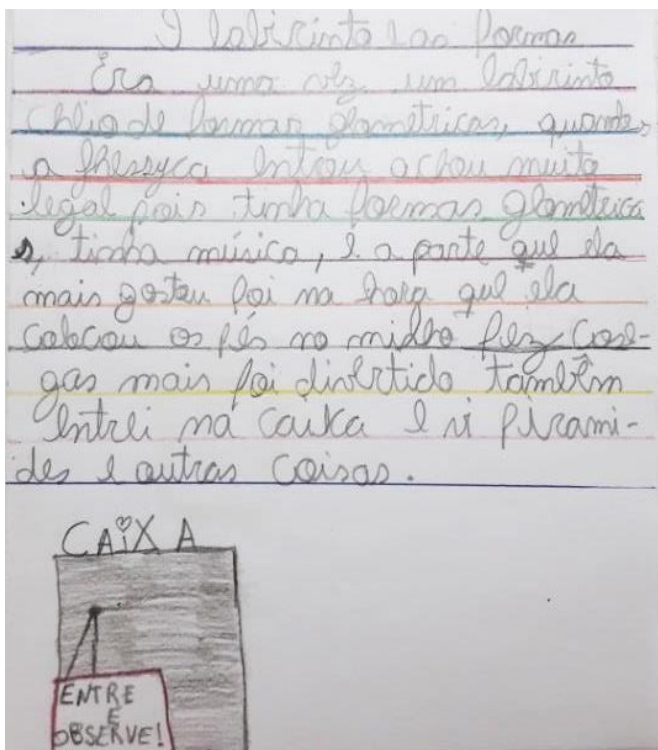 O labirinto das formas
Era uma vez um labirinto
cheio de formas geometricas, quando
a Jhessyca entrou achou muito
legal pois tinha formas geometrica
s, tinha música, e a parte que ela
mais gostou foi na hora que ela
colocou os pés no milho fez cose-
gas mais foi divertido também
entrei na caixa e vi pirami-
des e outras coisas.
CAIXA
ENTRE
E
OBSERVE!